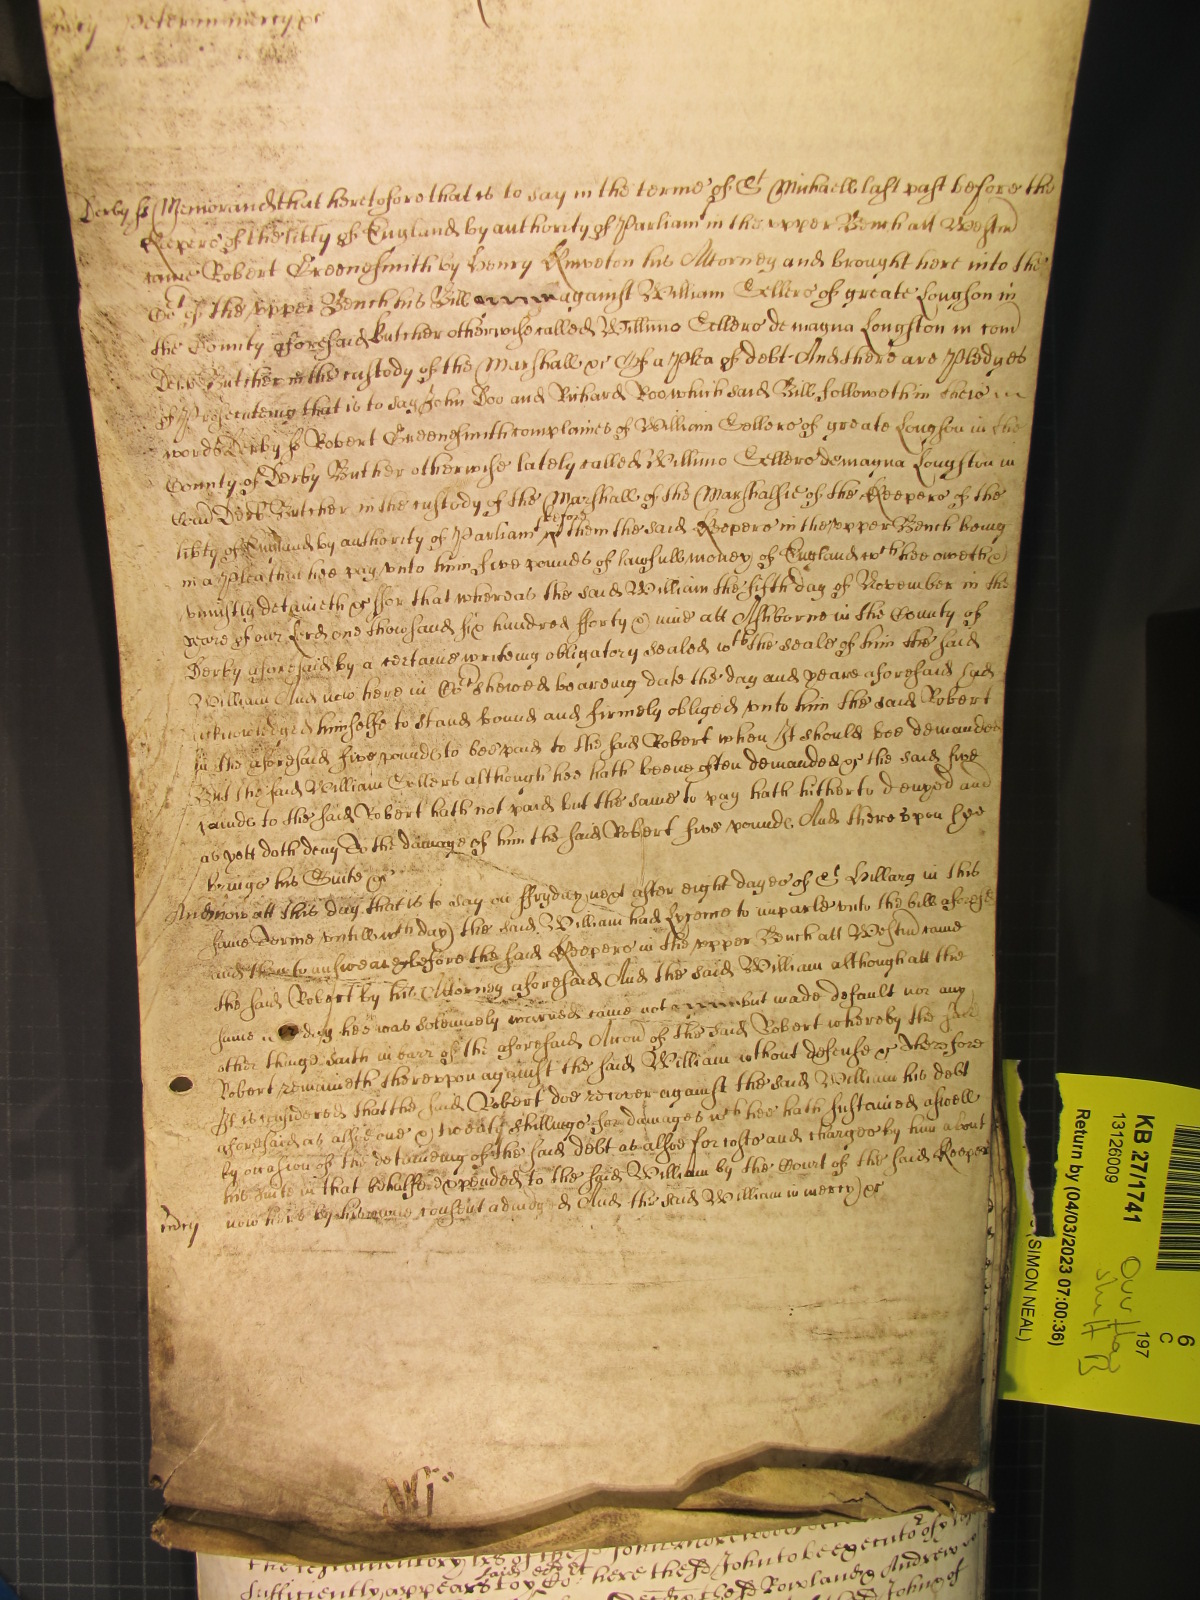 in mercy &c
Derby ss Memorand that heretofore that is to say in the terme of St Michaell last past before the
Keepers of the lib̃ty of England by authority of Parliamt in the upper Bench att Westm̃
came Robert Greensmith by Henry Kniveton his Attorney and brought here into the
Cort of the upper Bench his Bill against William Sellers of greate Longson in
the County aforesaid Butcher otherwise called Willimo Sellers de magna Longston in com̃
Derb Butcher in the custody of the Marshall &c Of a Plea of debt And there are Pledges
of Prosecuteing that is to say John Doo and Richard Roo which said Bill followeth in these
words Derby ss Robert Greensmith complaines of William Sellers of greate Longson in the
County of Derby Butcher otherwise lately called Willimo Sellers de magna Longston in
Com̃ Derb Butcher in the custody of the Marshall of the Marshalsie of the Keepers of the
lib̃ty of England by authority of Parliamt before them the said Keepers in the upper Bench being
in a Plea that hee pay unto him five pounds of lawfull money of England wch hee oweth &
uniustly detaineth &c ffor that whereas the said William the fifth day of November in the
yeare of our Lord one thowsand six hundred fforty & nine att Ashborne in the County of
Derby aforesaid by a certaine writeing obligatory sealed wth the seale of him the said
William And now here in Cort shewed beareing date the day and yeare aforesaid had
acknowledged himselfe to stand bound and firmely obliged unto him the said Robert
In the aforesaid five pounds to bee paid to the said Robert when It should bee demanded
But the said William Sellers although hee hath beene often demanded &c the said five
pounds to the said Robert hath not paid but the same to pay hath hitherto denyed and
as yett doth deny To the damage of him the said Robert five pounds And thereupon hee
brings his Suite &c
And now att this day that is to say on ffryday next after eight dayes of St Hillary in this
same Terme untill wch day the said William had Lycence to imparle unto the bill aforesd
and then to answeare &c before the said Keepers in the upper Bench att Westm̃ came
the said Robert by his Attorney aforesaid And the said William although att the
same day hee was solemnely required came not but made default nor any
other thinge saith in barr of the aforesaid Accon̄ of the said Robert whereby the said
Robert remaineth thereupon against the said William wthout defense &c Therefore
It is considered that the said Robert doe recover against the said William his debt
aforesaid as alsoe one & twenty shillings for damages wch hee hath sustained aswell
by occasion of the detaineing of the said debt as alsoe for costs and charges by him about
his suite in that behalfe expended to the said William by the Court of the said Keepers
now here by his owne consent adiudged And the said William in mercy &c
in mcy
KB 27/1741
13126009
Return by (04/03/2023 07:00:36)
(SIMON NEAL)
6
C
197
sufficiently appears to ye Cort here the sd John to bee executor of
the sd Rowland & Andrew